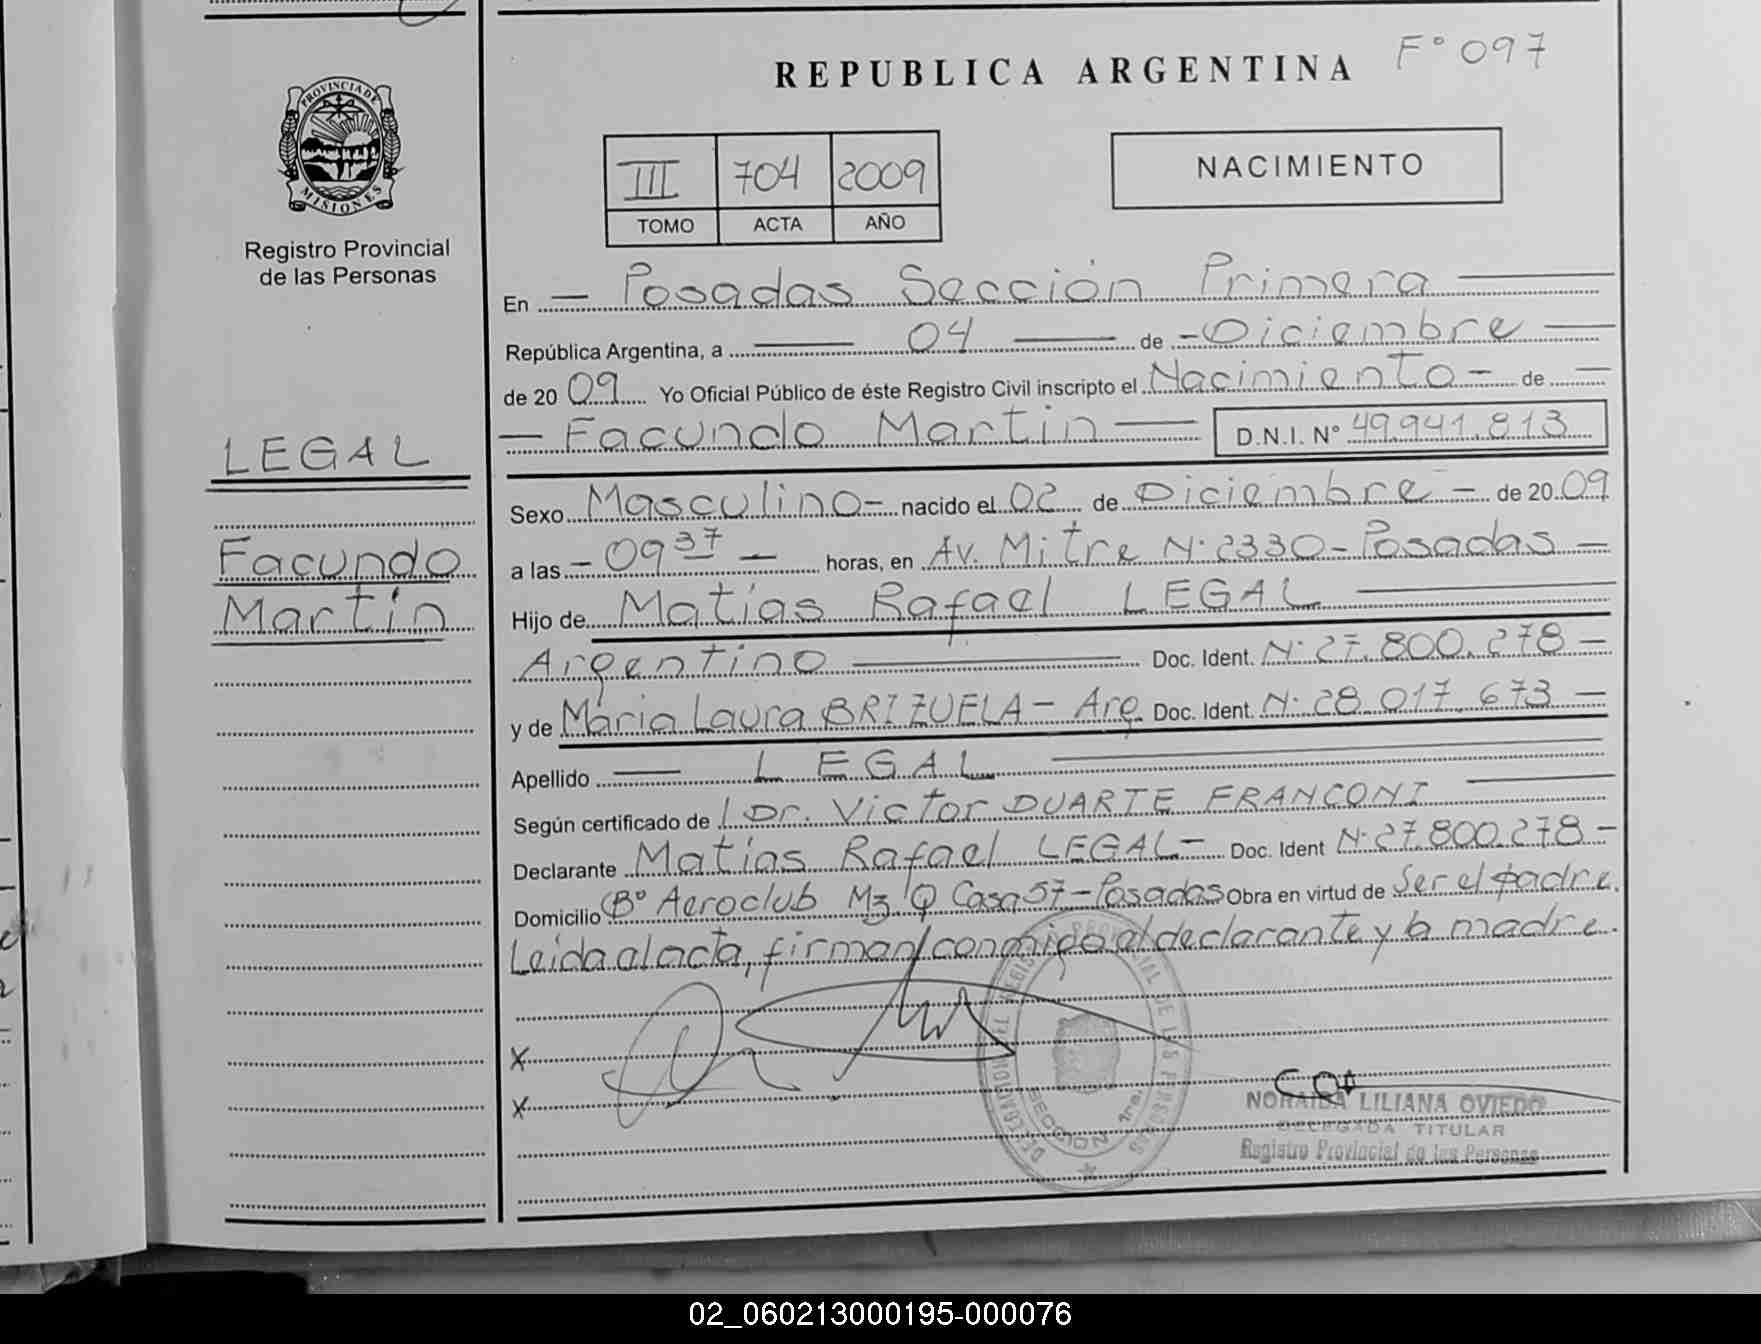 REPUBLICA ARGENTINA
F° 097
PROVINCIA DE MISIONES
Registro Provincial
de las Personas
III 704 2009
TOMO ACTA AÑO
NACIMIENTO
En - Posadas Sección Primera
República Argentina, a 04 de - Diciembre
de 20 09 Yo Oficial Público de éste Registro Civil inscripto el Nacimiento - de -
- Facundo Martín - D.N.I. N° 49.941.813
LEGAL
Facundo
Martín
Sexo Masculino - nacido el 02 de Diciembre - de 20 09
a las - 09 37 - horas, en Av. Mitre N° 2330 - Posadas -
Hijo de Matías Rafael LEGAL
Argentino Doc. Ident. N° 27.800.278 -
y de María Laura BRIZUELA - Arg. Doc. Ident. N° 28.017.673 -
Apellido - LEGAL
Según certificado de Dr. Victor DUARTE FRANCONI
Declarante Matías Rafael LEGAL - Doc. Ident N° 27.800.278 -
Domicilio B° Aeroclub Mz Q Casa 57 - Posadas Obra en virtud de Ser el padre.
Leída al acta, firman conmigo el declarante y la madre.
X
X
SECCION 1ra.
NORAIDA LILIANA OVIEDO
DELEGADA TITULAR
Registro Provincial de las Personas
02_060213000195-000076